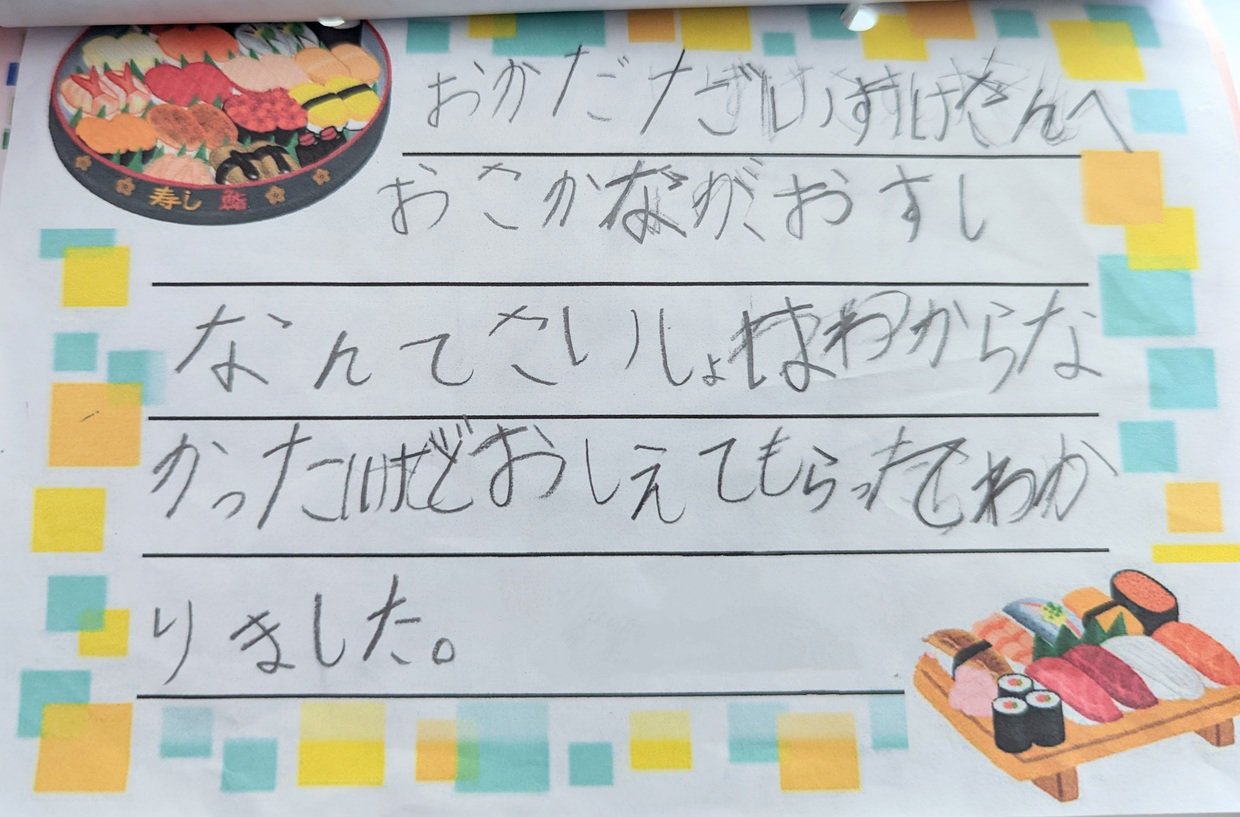 寿し 鮨
おかだだいすけさんへ
おさかなが、おすし
なんてさいしょはわからな
かったけどおしえてもらってわか
りました。